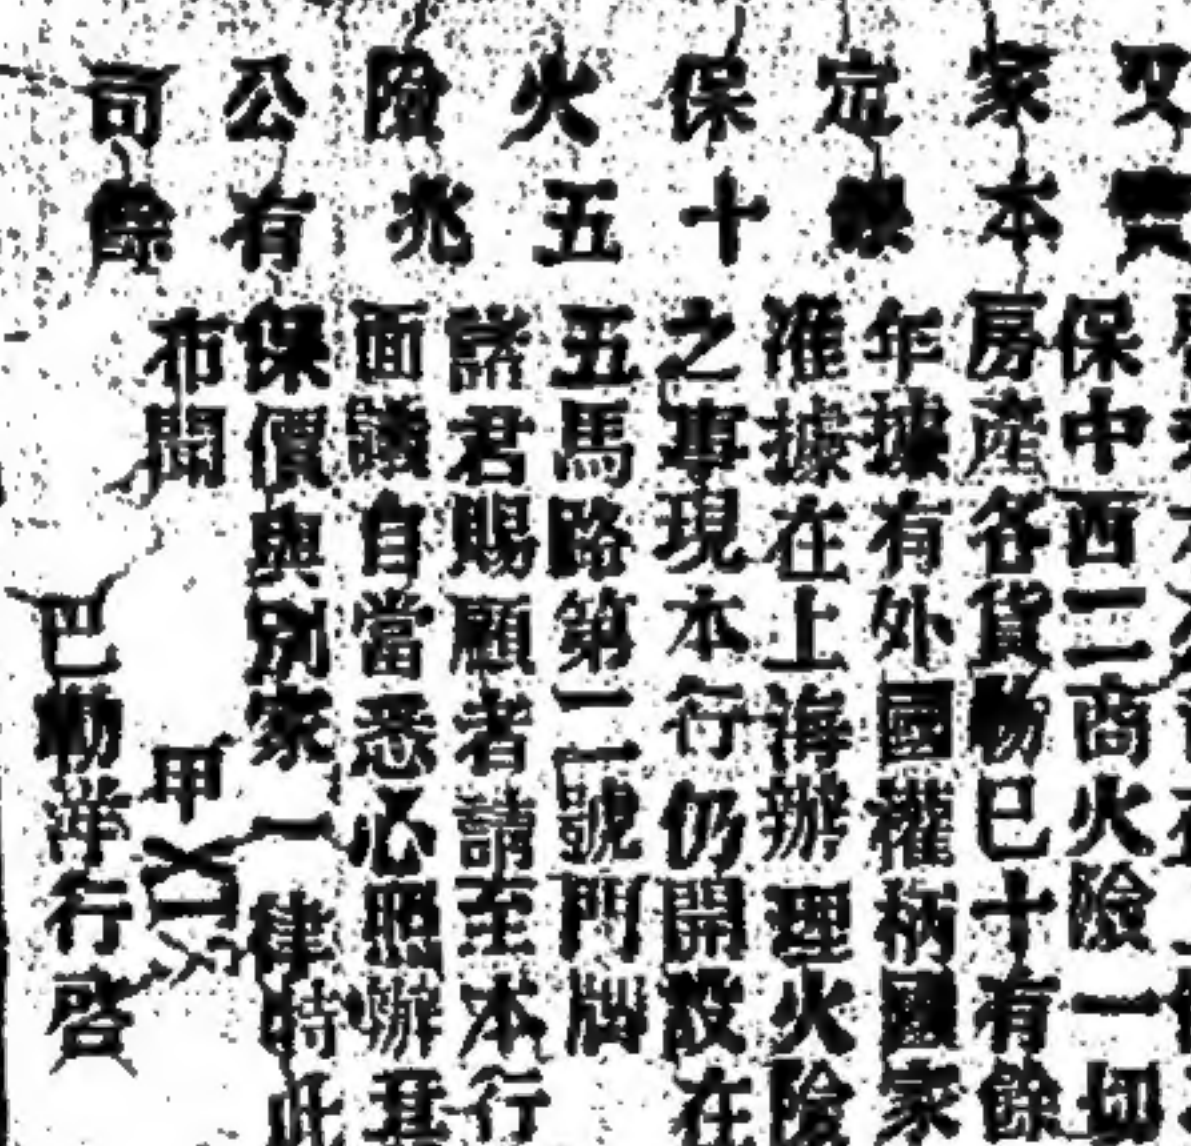 又家定保火險公司
本銀十五兆有餘
保中西二商火險一切
房產各貨物已十有餘
年據有外國權柄國家
准據在上海辦理火險
之專現本行仍開設在
五馬路第二號門牌
諸君賜顧者請至本行
面議自當悉心照辦其
保價與別家一律特此
布聞
甲
巴勒洋行啓